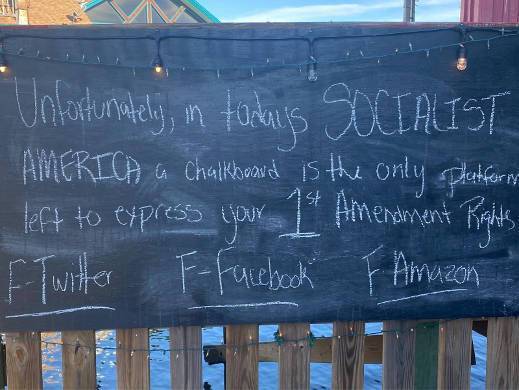 Unfortunately, in todays SOCIALIST
AMERICA a chalkboard is the only platform
left to express your 1st Amendment Rights
F-Twitter F-Facebook F Amazon